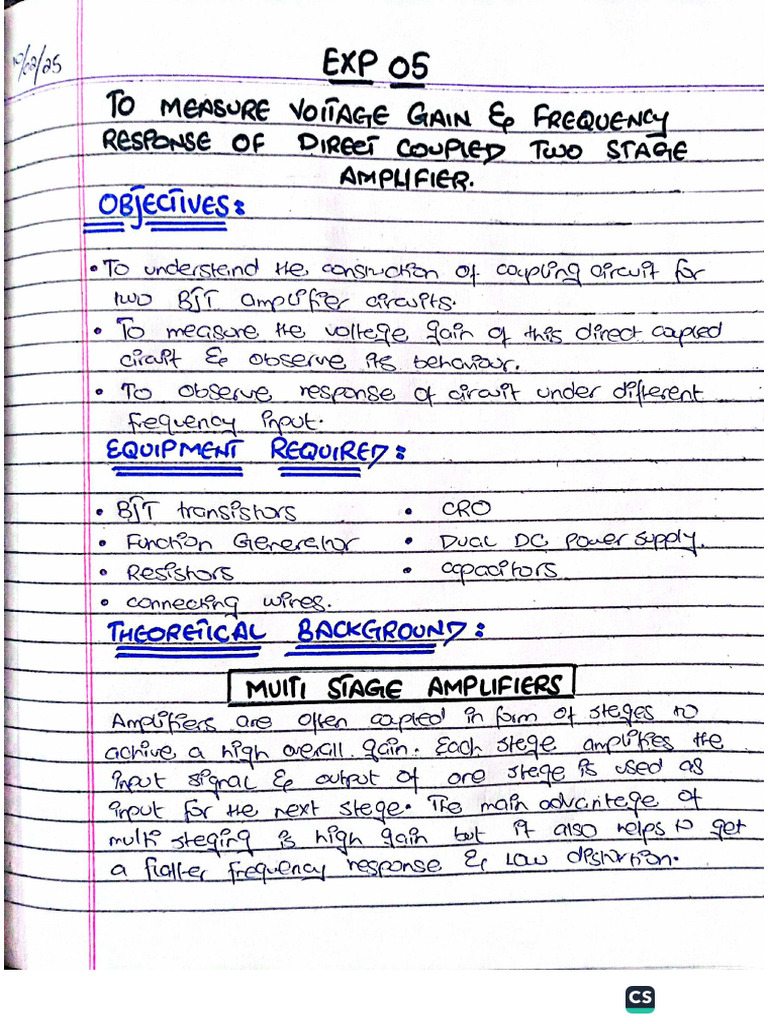 10/02/25
EXP 05
TO MEASURE VOLTAGE GAIN & FREQUENCY
RESPONSE OF DIRECT COUPLED TWO STAGE
AMPLIFIER.
OBJECTIVES:
• To understand the construction of coupling circuit for
two BJT amplifier circuits.
• To measure the voltage gain of this direct coupled
circuit & observe its behaviour.
• To observe response of circuit under different
frequency input.
EQUIPMENT REQUIRED:
• BJT transistors • CRO
• Function Generator • Dual DC power supply.
• Resistors • capacitors
• connecting wires.
THEORETICAL BACKGROUND:
MULTI STAGE AMPLIFIERS
Amplifiers are often coupled in form of stages to
achive a high overall gain. Each stage amplifies the
input signal & output of one stage is used as
input for the next stage. The main advantage of
multi staging is high gain but it also helps to get
a flatter frequency response & low distortion.
CS